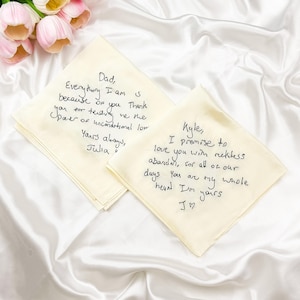 Dad,
Everything I am is
because of you. Thank
you for teaching me the
power of unconditional love
Yours always,
Julia
Kyle,
I promise to
love you with reckless
abandon, for all of our
days. You are my whole
heart. I'm yours
J ♡